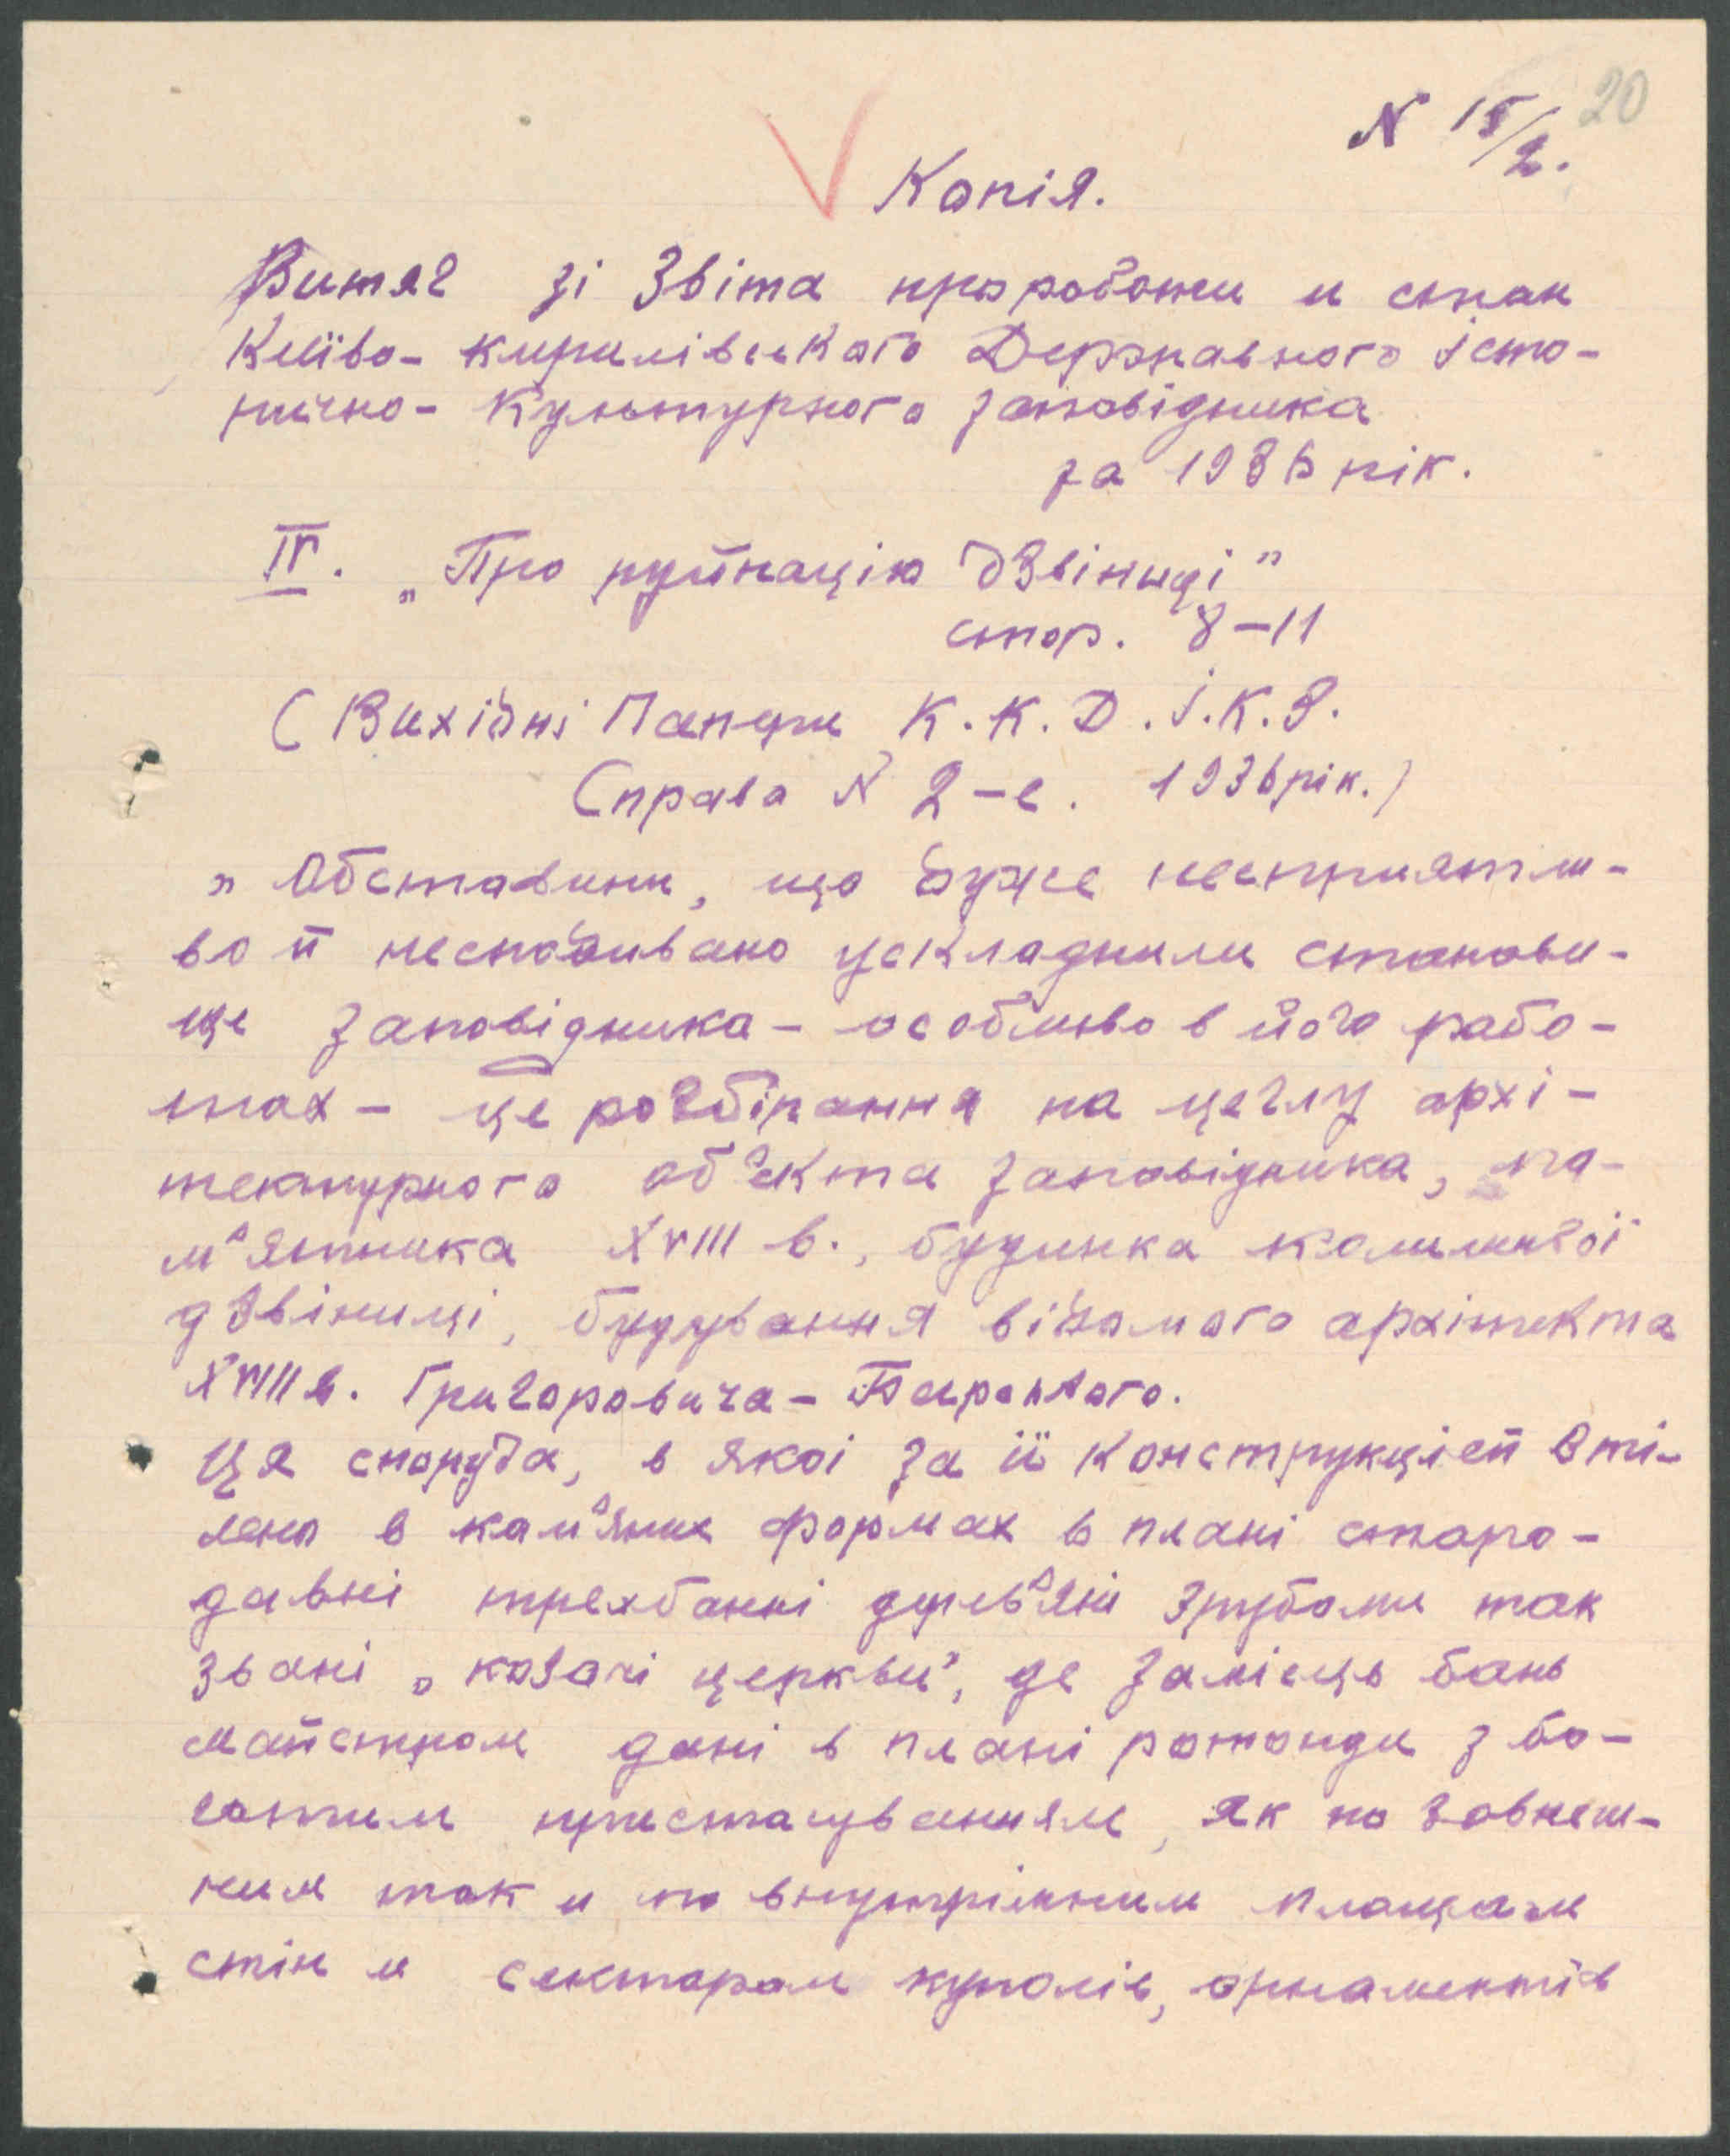 20
N 15/2.
Копія.
Витяг зі Звіта про роботи и стан
Київо-Кирилівського Державного Істо-
рично-Культурного заповідника
за 1936 рік.
IV. „Про руйнацію дзвіниці"
стор. 8–11
(Вихідні Папери К.К.Д.І.К.З.
Справа N 2-е. 1936 рік.)
„Обставини, що дуже несприятли-
во й несподивано ускладнили станови-
ще заповідника – особливо в його робо-
тах – це розбірання на цеглу архі-
тектурного об'єкта заповідника, па-
м'ятника XVIII в., будинка колишньої
дзвіниці, будування відомого архітекта
XVIII в. Григоровича-Барського.
Ця споруда, в якої за її конструкцієй вті-
лено в кам'яних формах в плані старо-
давні трехбанні дерев'яні зрубами так
звані „козачі церкви", де замісць бань
майстром дані в плані ротонди з бо-
гатим пристасуванням, як по зовнеш-
ним так и по внутрішним площам
стін и секторам куполів, орнаментів